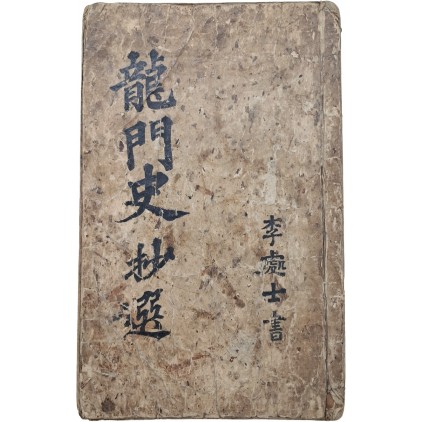 龍門史抄選
李處士書